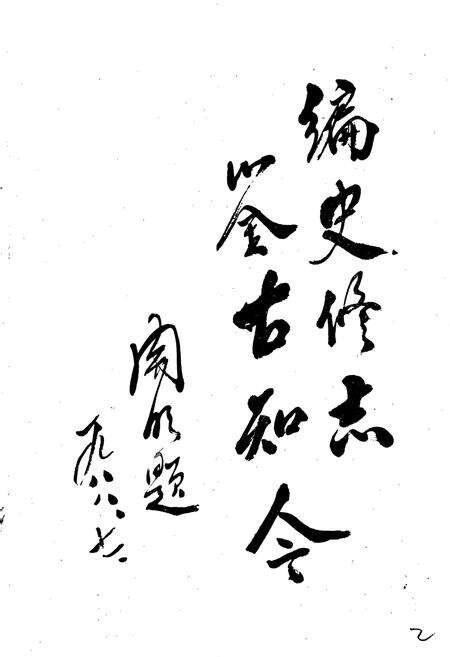 编史修志
鉴古知今
题
一九八八、七、
2